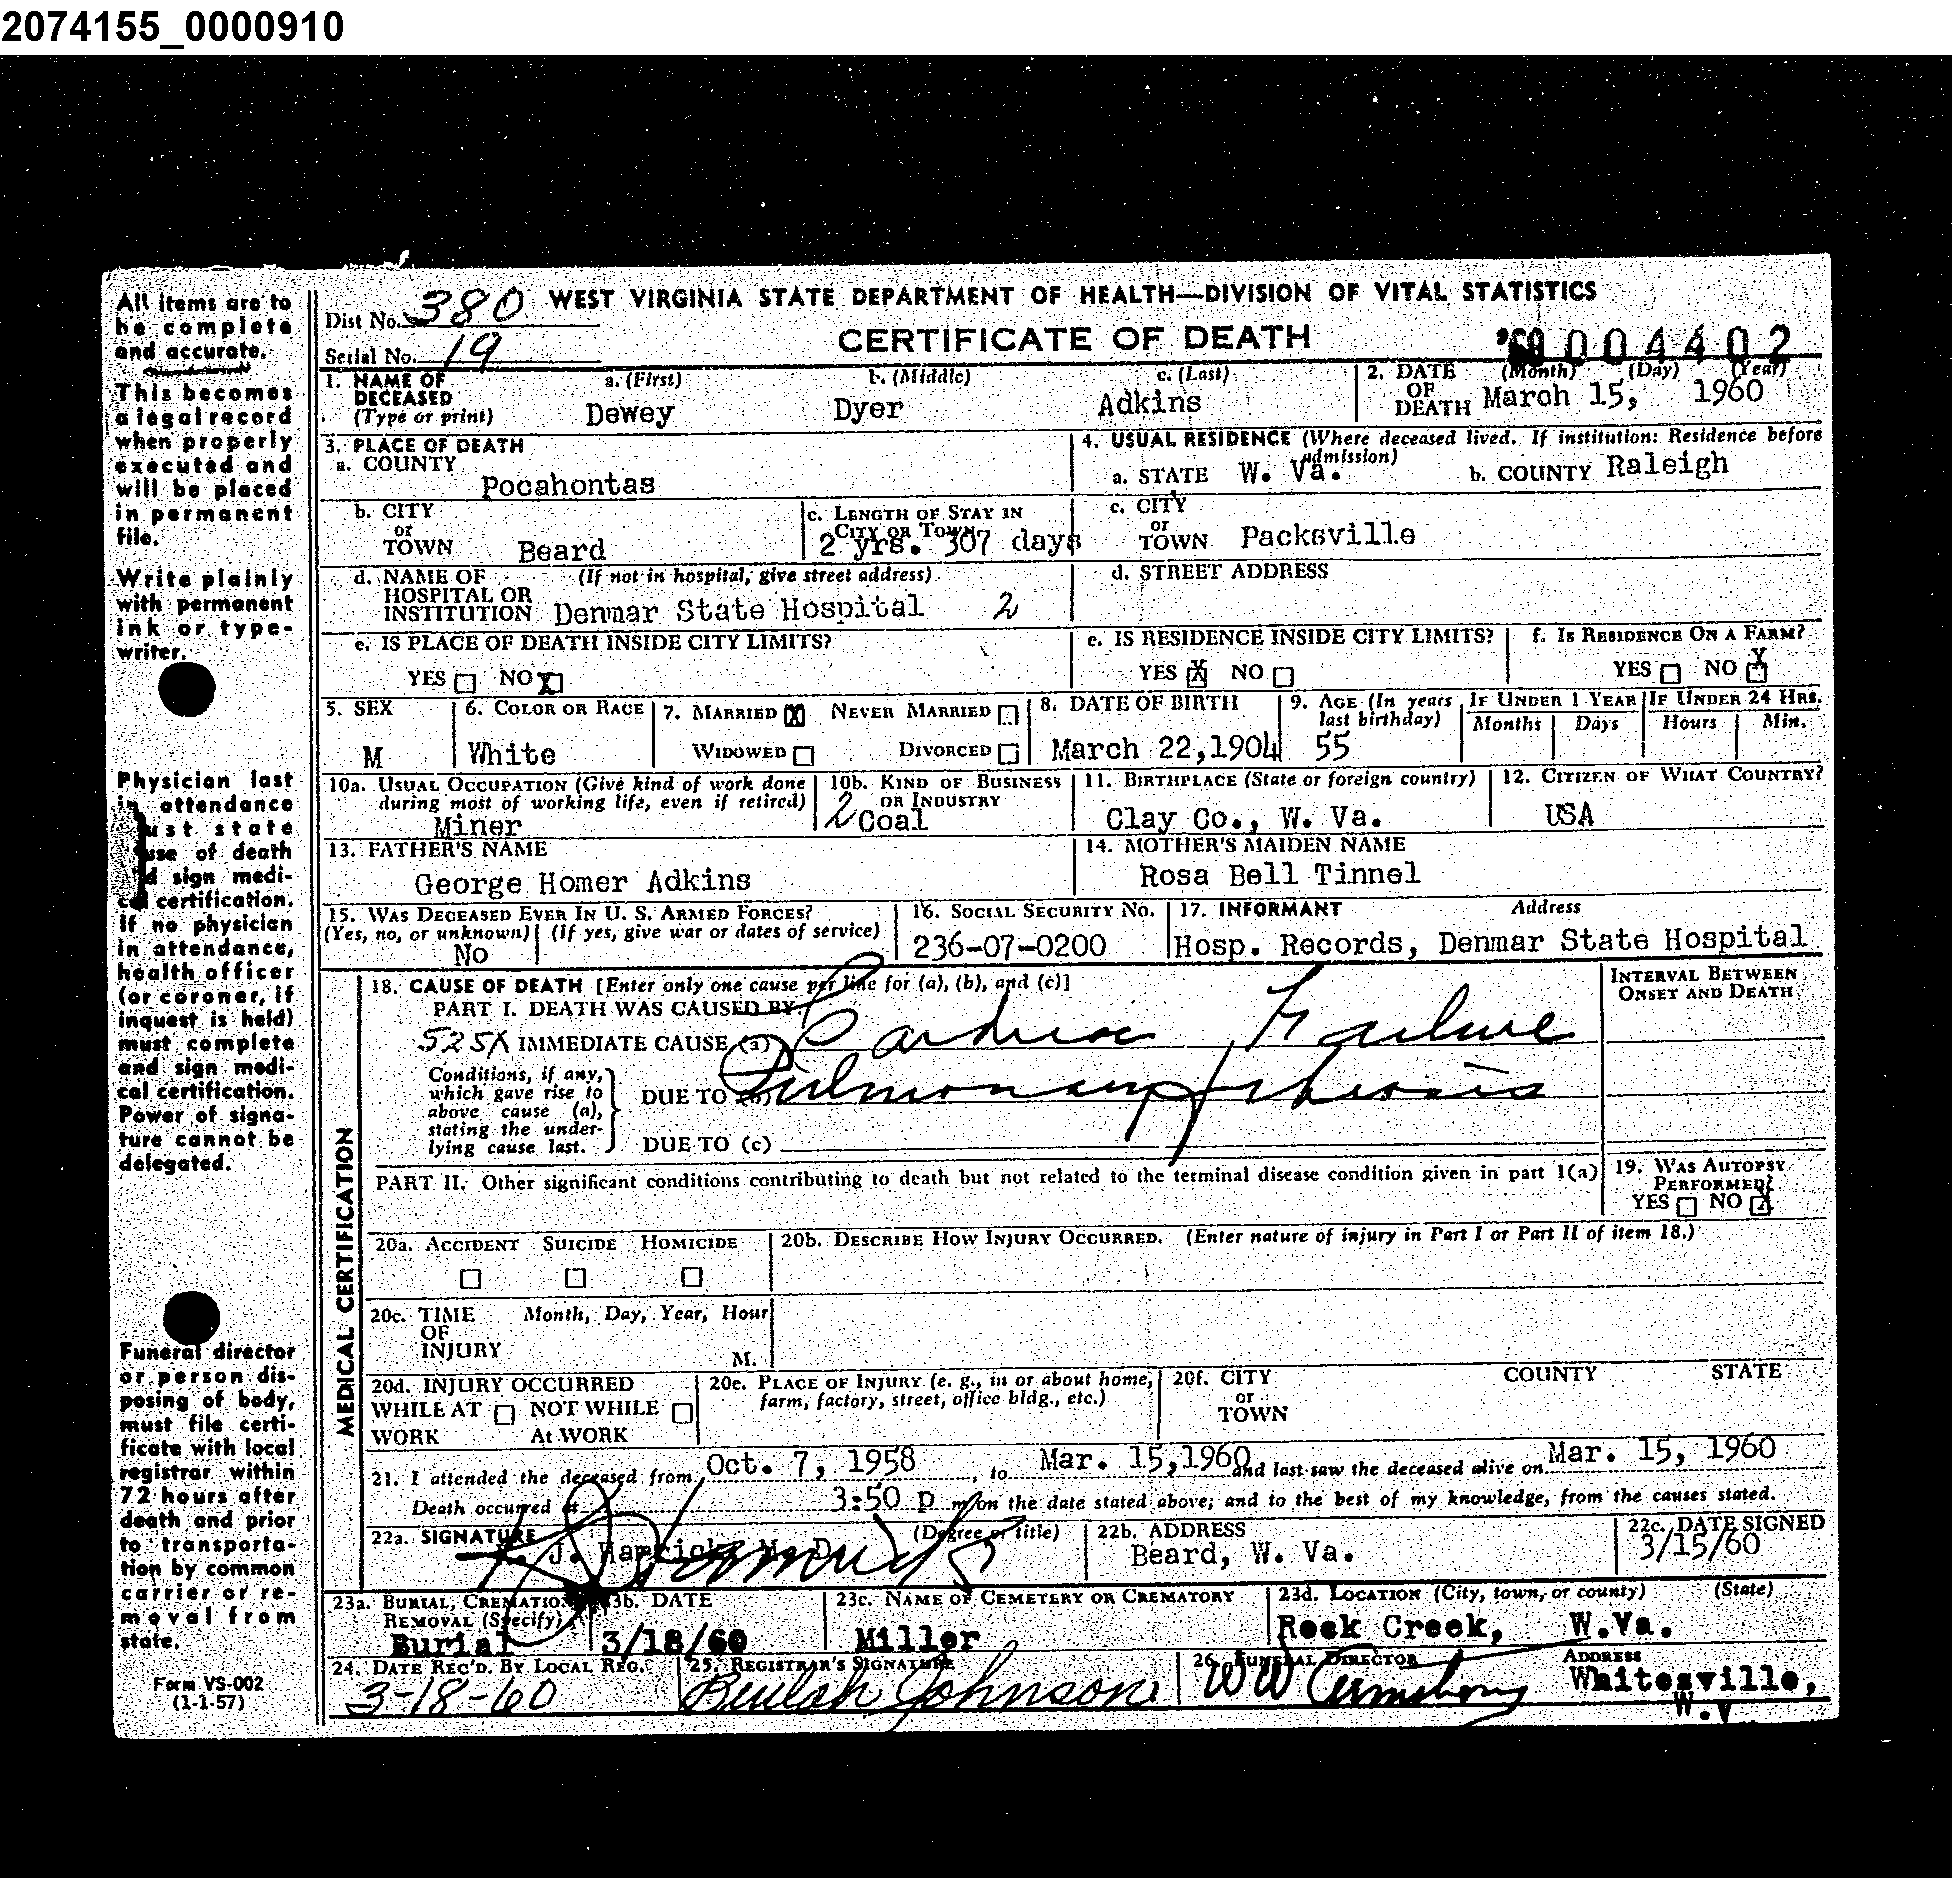 2074155_0000910
All items are to
be complete
and accurate.
This becomes
a legal record
when properly
executed and
will be placed
in permanent
file.
Write plainly
with permanent
ink or type-
writer.
Physician last
in attendance
must state
cause of death
and sign medi-
cal certification.
If no physician
in attendance,
health officer
(or coroner, if
inquest is held)
must complete
and sign medi-
cal certification.
Power of signa-
ture cannot be
delegated.
Funeral director
or person dis-
posing of body,
must file certi-
ficate with local
registrar within
72 hours after
death and prior
to transporta-
tion by common
carrier or re-
moval from
state.
Form VS-002
(1-1-57)
Dist No. 380 WEST VIRGINIA STATE DEPARTMENT OF HEALTH—DIVISION OF VITAL STATISTICS
Serial No. 19 CERTIFICATE OF DEATH '60 004402
1. NAME OF DECEASED (Type or print) a. (First) b. (Middle) c. (Last) 2. DATE OF DEATH (Month) (Day) (Year)
Dewey Dyer Adkins March 15, 1960
3. PLACE OF DEATH 4. USUAL RESIDENCE (Where deceased lived. If institution: Residence before admission)
a. COUNTY Pocahontas a. STATE W. Va. b. COUNTY Raleigh
b. CITY or TOWN Beard c. LENGTH OF STAY IN CITY OR TOWN 2 yrs. 307 days c. CITY or TOWN Packsville
d. NAME OF HOSPITAL OR INSTITUTION (If not in hospital, give street address) Denmar State Hospital 2 d. STREET ADDRESS
e. IS PLACE OF DEATH INSIDE CITY LIMITS? e. IS RESIDENCE INSIDE CITY LIMITS? f. IS RESIDENCE ON A FARM?
YES NO X YES X NO YES NO X
5. SEX 6. COLOR OR RACE 7. MARRIED X NEVER MARRIED 8. DATE OF BIRTH 9. AGE (In years last birthday) IF UNDER 1 YEAR IF UNDER 24 HRS.
Months Days Hours Min.
M White WIDOWED DIVORCED March 22,1904 55
10a. USUAL OCCUPATION (Give kind of work done during most of working life, even if retired) 10b. KIND OF BUSINESS OR INDUSTRY 11. BIRTHPLACE (State or foreign country) 12. CITIZEN OF WHAT COUNTRY?
Miner 2 Coal Clay Co., W. Va. USA
13. FATHER'S NAME 14. MOTHER'S MAIDEN NAME
George Homer Adkins Rosa Bell Tinnel
15. WAS DECEASED EVER IN U. S. ARMED FORCES? 16. SOCIAL SECURITY No. 17. INFORMANT Address
(Yes, no, or unknown) (If yes, give war or dates of service)
No 236-07-0200 Hosp. Records, Denmar State Hospital
MEDICAL CERTIFICATION
18. CAUSE OF DEATH [Enter only one cause per line for (a), (b), and (c)] INTERVAL BETWEEN ONSET AND DEATH
PART I. DEATH WAS CAUSED BY:
525X IMMEDIATE CAUSE (a) Cardiac Failure
Conditions, if any, which gave rise to above cause (a), stating the underlying cause last.
DUE TO (b) Pulmonary fibrosis
DUE TO (c)
PART II. Other significant conditions contributing to death but not related to the terminal disease condition given in part I(a) 19. WAS AUTOPSY PERFORMED?
YES NO X
20a. ACCIDENT SUICIDE HOMICIDE 20b. DESCRIBE HOW INJURY OCCURRED. (Enter nature of injury in Part I or Part II of item 18.)
20c. TIME OF INJURY Month, Day, Year, Hour M.
20d. INJURY OCCURRED 20e. PLACE OF INJURY (e. g., in or about home, farm, factory, street, office bldg., etc.) 20f. CITY or TOWN COUNTY STATE
WHILE AT WORK NOT WHILE At WORK
21. I attended the deceased from Oct. 7, 1958, to Mar. 15,1960 and last saw the deceased alive on Mar. 15, 1960
Death occurred at 3:50 p m on the date stated above; and to the best of my knowledge, from the causes stated.
22a. SIGNATURE (Degree or title) 22b. ADDRESS 22c. DATE SIGNED
J. Hamrick, M. D. Beard, W. Va. 3/15/60
23a. BURIAL, CREMATION, REMOVAL (Specify) 23b. DATE 23c. NAME OF CEMETERY OR CREMATORY 23d. LOCATION (City, town, or county) (State)
Burial 3/18/60 Miller Rock Creek, W.Va.
24. DATE REC'D. BY LOCAL REG. 25. REGISTRAR'S SIGNATURE 26. FUNERAL DIRECTOR ADDRESS
3-18-60 Beulah Johnson WW Armstrong Whitesville,
W.V